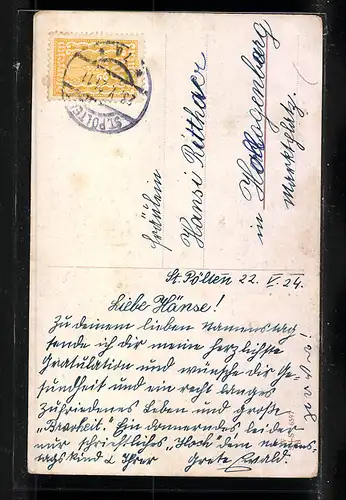 ST. PÖLTEN
Fräulein
Hansi Ritthaer
in Hollogenbarg
Marktplatz.
St. Pölten 22. V. 24.
Liebe Hänse!
Zu deinem lieben Namenstag
sende ich dir meine herzlichste
Gratulation und wünsche dir Ge-
sundheit und ein recht langes
zufriedenes Leben und große
"Bravheit." Ein donnerndes leider
nur schriftliches "Hoch" dem Namens-
tagskind v. Ihrer Grete Ewald.